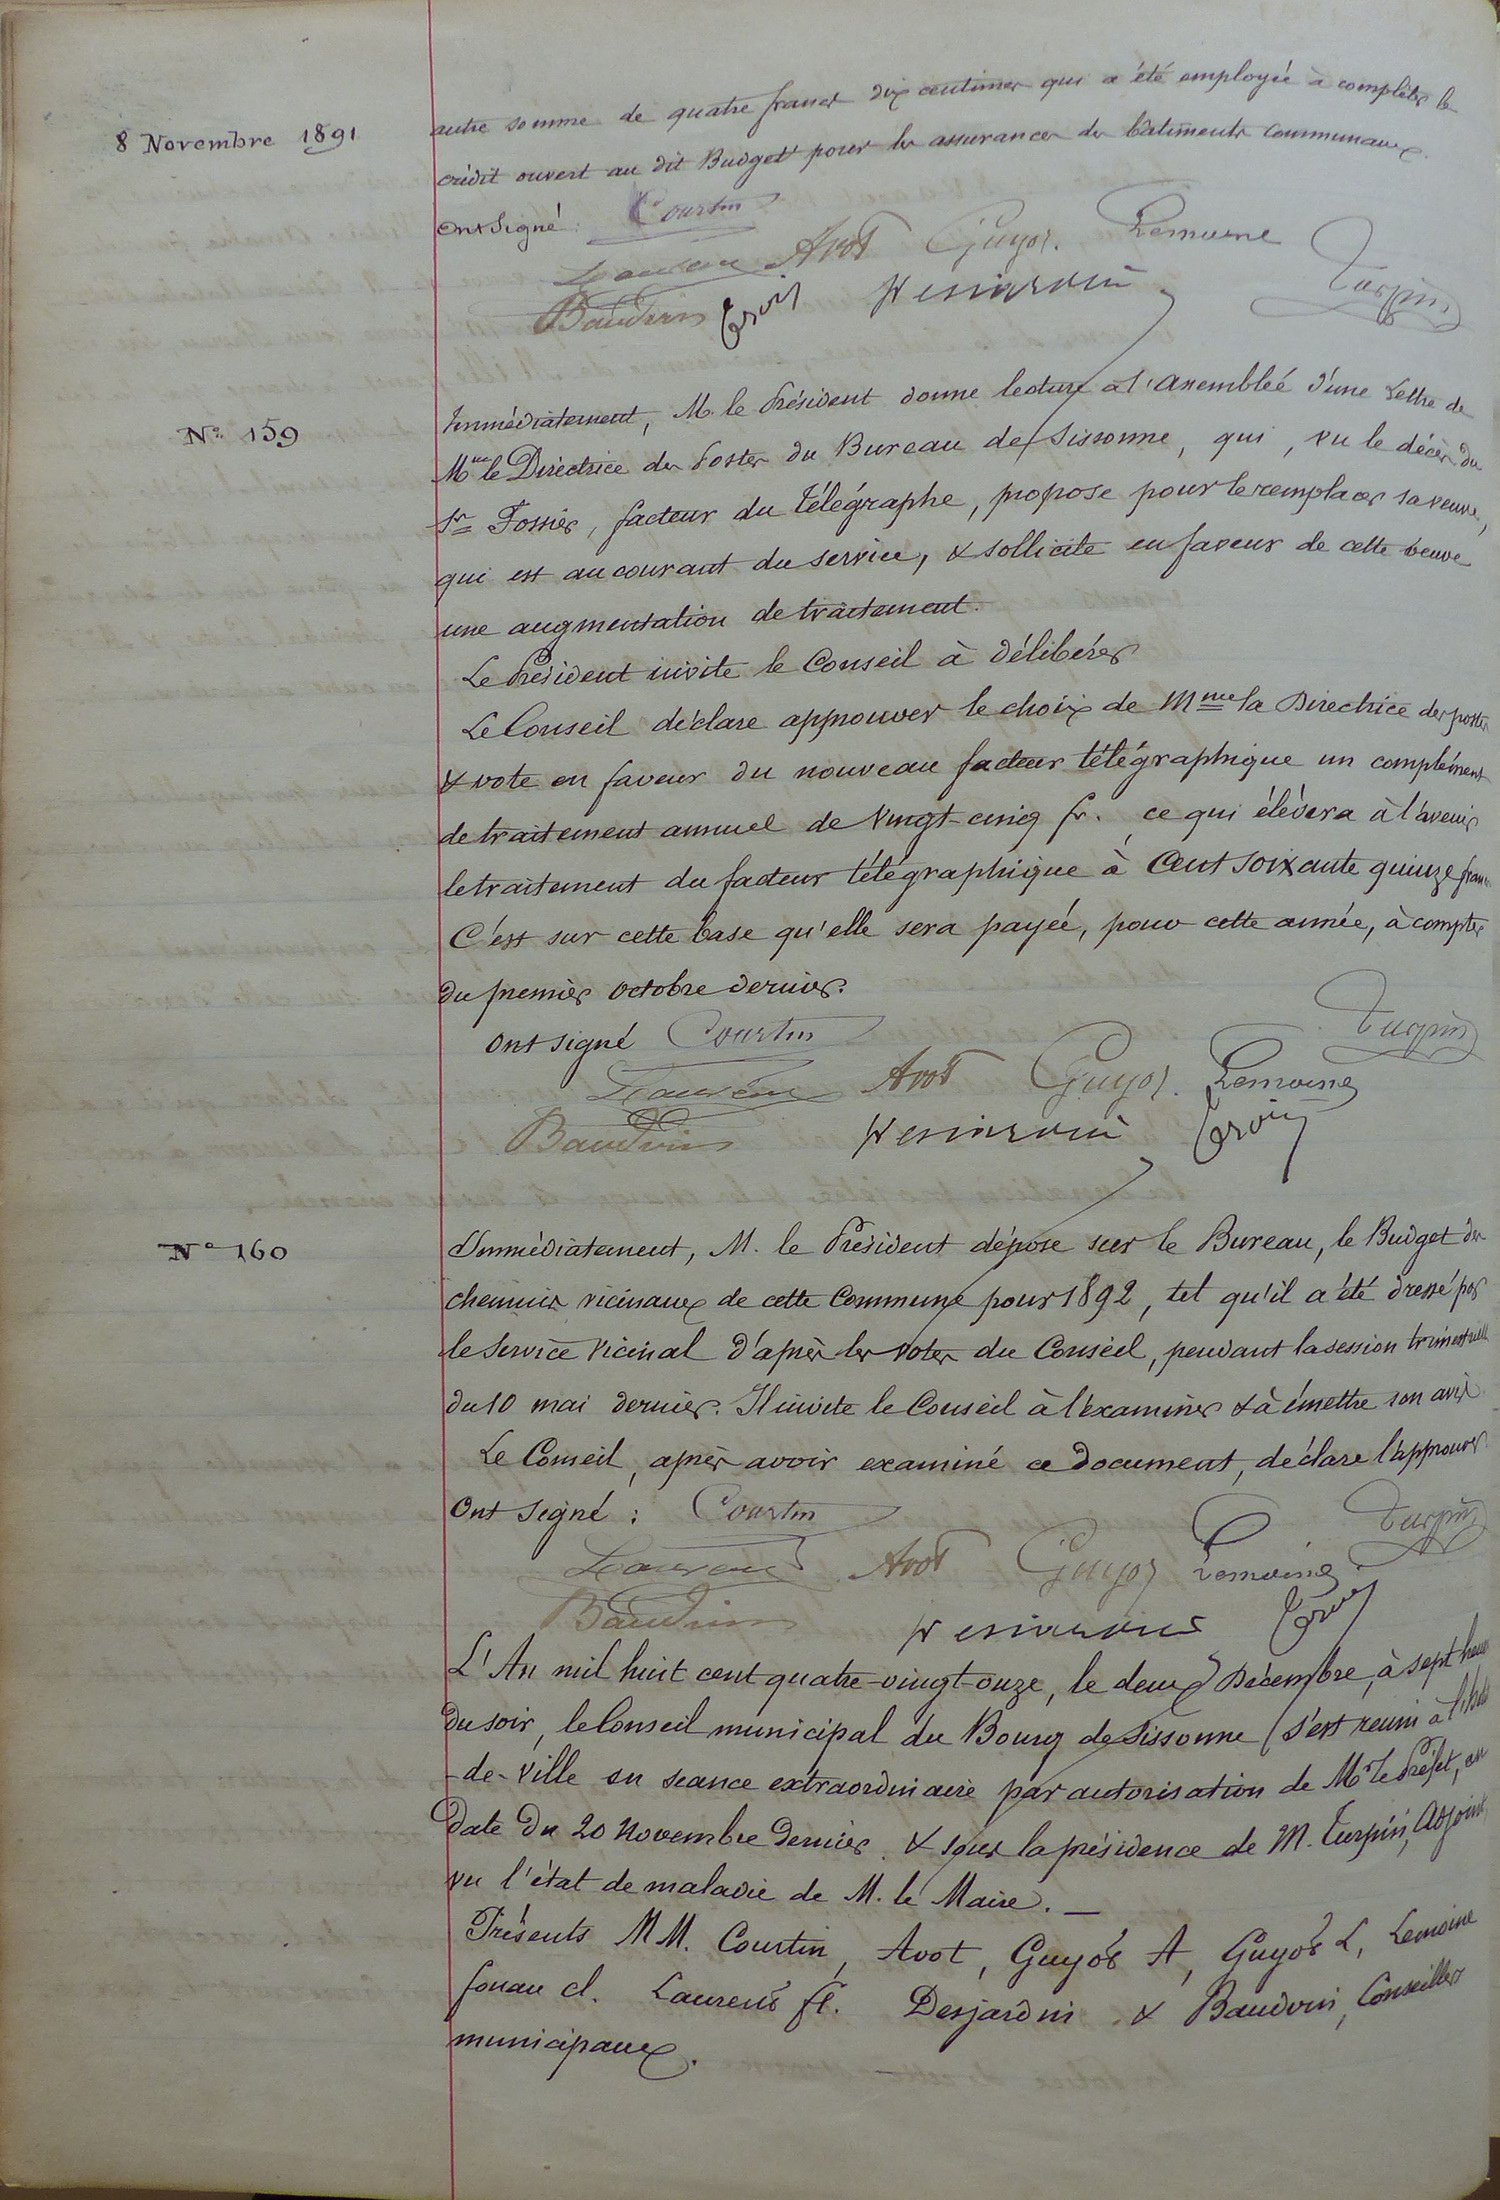 8 Novembre 1891
autre somme de quatre francs dix centimes qui a été employée à compléter le
crédit ouvert au dit Budget pour les assurances des bâtiments communaux.
ont signé : Courtin
Laurent Avot Guyot. Lemoine
Turpin
Baudvin Desjardin
N° 159
Immédiatement, M. le Président donne lecture à l'assemblée d'une Lettre de
Mme le Directrice des Postes du Bureau de Sissonne, qui, vu le décès du
Sr Fossier, facteur du télégraphe, propose pour le remplacer sa veuve,
qui est au courant du service, & sollicite en faveur de cette veuve
une augmentation de traitement.
Le Président invite le Conseil à délibérer
Le Conseil déclare approuver le choix de Mme la Directrice des postes
& vote en faveur du nouveau facteur télégraphique un complément
de traitement annuel de Vingt-cinq fr. ce qui élèvera à l'avenir
le traitement du facteur télégraphique à Cent soixante quinze francs
C'est sur cette base qu'elle sera payée, pour cette année, à compter
du premier octobre dernier.
ont signé Courtin Turpin
Laurent Avot Guyot. Lemoine
Baudvin Desjardin
N° 160
Immédiatement, M. le Président dépose sur le Bureau, le Budget des
chemins vicinaux de cette Commune pour 1892, tel qu'il a été dressé par
le Service Vicinal d'après les votes du Conseil, pendant la session trimestrielle
du 10 mai dernier. Il invite le Conseil à l'examiner & à émettre son avis
Le Conseil, après avoir examiné ce Document, déclare l'approuver
Ont Signé : Courtin Turpin
Laurent Avot Guyot Lemoine
Baudvin Desjardin
L'An mil huit cent quatre-vingt-onze, le deux Décembre, à sept heures
du soir, le Conseil municipal du Bourg de Sissonne s'est réuni à l'hôtel
-de-Ville en séance extraordinaire par autorisation de Mr le Préfet, en
date du 20 Novembre Dernier & sous la présidence de M. Turpin, Adjoint
vu l'état de maladie de M. le Maire. —
Présents MM. Courtin, Avot, Guyot A, Guyot L, Lemoine
fouan cl. Laurent fl. Desjardin & Baudvin, Conseillers
municipaux.